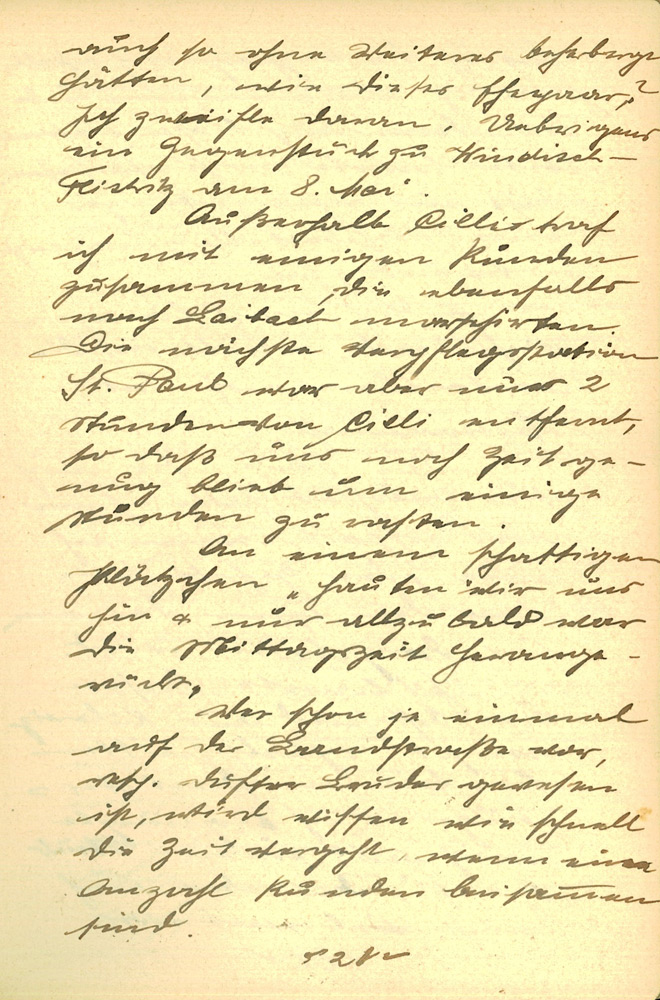 auch so ohne Weiteres beherbergt
hätten, wie dieses Ehepaar?
Ich zweifle daran. Uebrigens
ein Gegenstück zu Windisch-
Feistritz am 8. Mai.
Außerhalb Cillis traf
ich mit einigen Kunden
zusammen, die ebenfalls
nach Laibach marschirten.
Die nächste Verpflegsstation
St. Paul war aber nur 2
Stunden von Cilli entfernt,
so daß uns noch Zeit ge-
nug blieb um einige
Stunden zu rasten.
An einem schattigen
Plätzchen „hauten wir uns
hin & nur allzubald war
die Mittagszeit herange-
rückt.
Wer schon je einmal
auf der Landstraße war,
resp. dufter Bruder gewesen
ist, wird wissen wie schnell
die Zeit vergeht, wenn eine
Anzahl Kunden beisammen
sind.